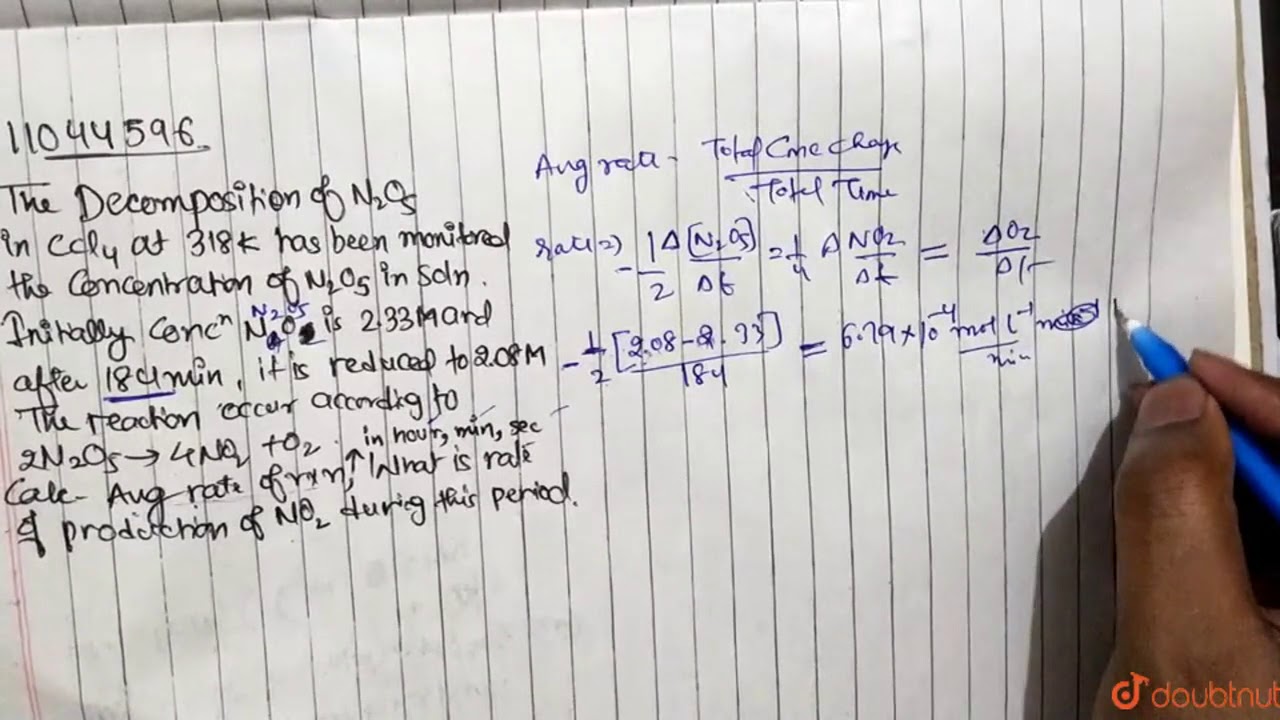 11044596.
The Decomposition of N2O5
in CCl4 at 318K has been monitored
the Concentration of N2O5 in Soln.
N2O5
Initially Concⁿ is 2.33M and
after 184min, it is reduced to 2.08M
The reaction occur according to
2N2O5 → 4NO2 + O2. in hour, min, sec
Calc- Aug rate of rxn, ↑ What is rate
of production of NO2 during this period.
Aug rate - Total Conc Change
Total Time
rate => -1/2 Δ[N2O5]/Δt = 1/4 ΔNO2/Δt = ΔO2/Δt
- 1/2 [2.08-2.33]/184 = 6.79 × 10⁻⁴ mol L⁻¹
min
doubtnut